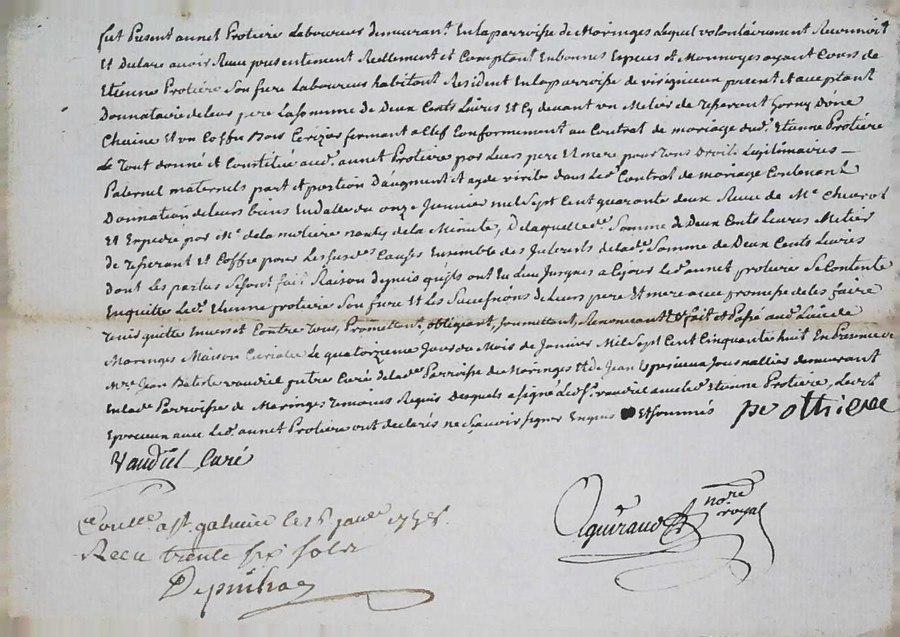 fut Present annet Protiere Laboureur demeurant En la parroisse de Maringes Lequel volontairement Reconnoit
Et Declare avoir Receu presentement Reellement et Comptant En bonnes Especes et Monnoyes ayant Cours de
Etienne Protiere Son frere Laboureur habitant Resident En la parroisse de virigneux present et acceptant
Donnataire de Leurs pere La somme de Deux Cents Livres Et Cy devant un Metier de
Chaine Et un Coffre Bois Cerizier fermant a Clef Conformement au Contrat de mariage dud. Etienne Protiere
Le Tout donné et Constitué aud. annet Protiere par Leurs pere Et mere pour Tous Droits Legitimaires
Paternel maternels part et portion D'augment et dans Led. Contrat de mariage Contenant
Donnation de Leurs biens En datte du onze Janvier mil Sept Cent quarante deux Receu de Me
Et Expedié par Me. de la de la Minute, De laquelle de. Somme de Deux Cents Livres Metier
Et Coffre pour Les susd. Causes Ensemble des Interets de lad. Somme de Deux Cents Livres
Dont Les parties Se sont fait Raison depuis quils ont Eu Lieu Jusques a Ce jour Led. annet protiere Se Contente
En quitte Led. Etienne protiere Son frere Et Les de Leurs pere Et mere avec promesse de les faire
Tenir quitte Envers et Contre Tous, Promettant, obligeant, Soumettant, Renonceant & fait et Passé aud. Lieu de
Maringes Maison Curialle Le quatorzieme Jour du Mois de Janvier Mil Sept Cent Cinquante huit En Presence de
Mre. Jean Batiste vaudiel pretre Curé de lad. Parroisse de Maringes Et de Jean Journallier demeurant
En lad. Parroisse de Maringes Temoins Requis Desquels a signé Led. Sr. vaudiel avec Led. Etienne Protiere, Led.
avec Led. annet Protiere ont declarés ne Sçavoir signer Enquis Et Sommés prothiere
Vaudiel Curé
Aguiraud nore royal
Controllé a St galmier le janvr. 1758.
Receu trente six sols